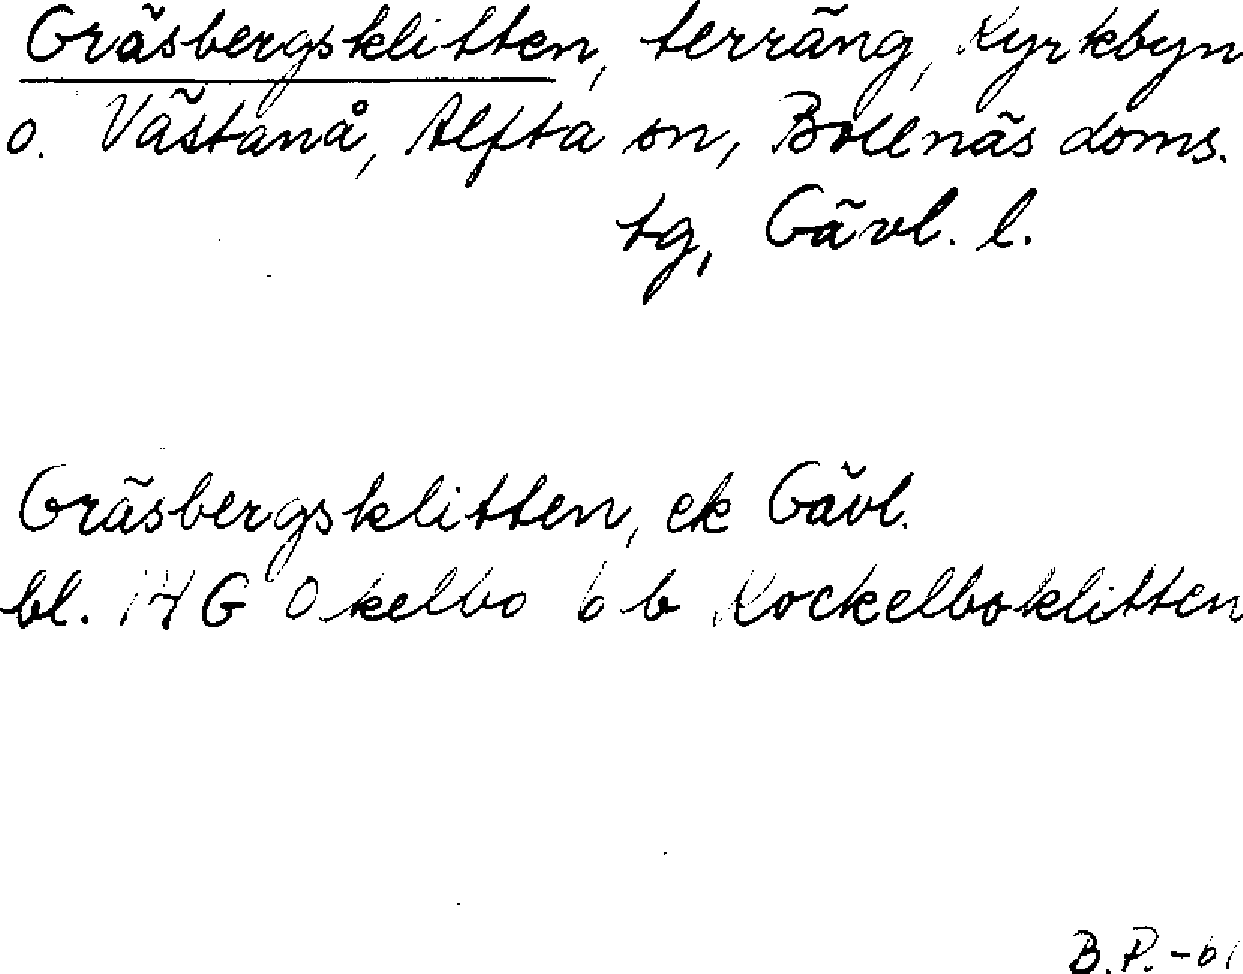 Gräsbergsklitten, terräng, Kyrkbyn
o. Västanå, Alfta sn, Bollnäs doms.
tg, Gävl. l.
Gräsbergsklitten, ek Gävl.
bl. 14 G Ockelbo 6 b Kockelboklitten
B.P. -61